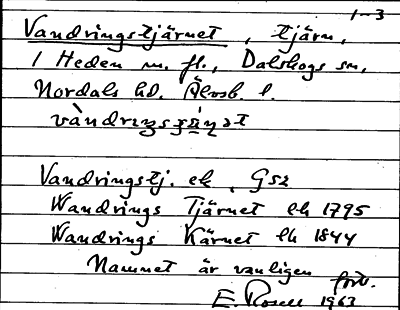 1-3
Vandringstjärnet, tjärn,
/ Heden m. fl., Dalskogs sn,
Nordals hd. Älvsb. l.

Vandringstj. ek, G52
Wandrings Tjärnet lh 1795
Wandrings Kärnet lh 1844
Namnet är vanligen förk.
E. Rosell 1963